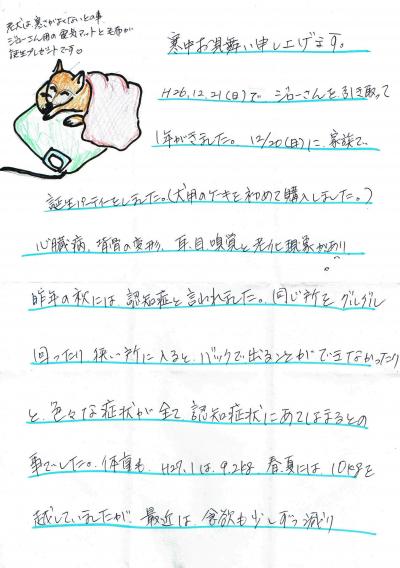 老犬は、寒さがよくないとの事
ジローさん用の電気マットと毛布が
誕生プレゼントです。
寒中お見舞い申し上げます。
H26.12.21(日)で ジローさんを引き取って
1年がきました。12/20(日)に、家族で、
誕生パーティーをしました。(犬用のケーキを初めて購入しました。)
心臓病、背骨の変形、耳、目、嗅覚と老化現象があり
昨年の秋には、認知症と言われました。同じ所を グルグル
回ったり 狭い所に入ると、バックで出ることができなかったり
と、色々な症状が全て 認知症状にあてはまるとの
事でした。体重も、H27.1は、9.2kg 春頃には 10kgを
越していましたが、最近は、食欲も少しずつ減り